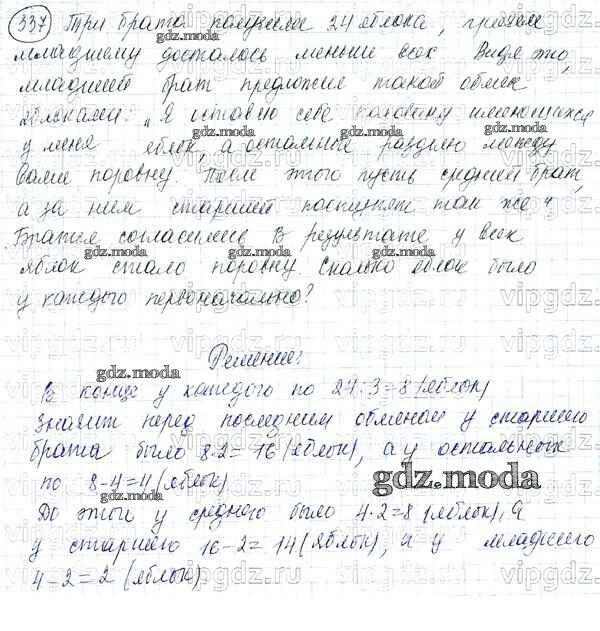 337 Три брата получили 24 яблока, причём
младшему досталось меньше всех Видя это,
младший брат предложил такой обмен
яблоками: „Я оставлю себе половину имеющихся
у меня яблок, а остальные разделю между
вами поровну. После этого пусть средний брат,
а за ним старший поступят так же"
Братья согласились В результате у всех
яблок стало поровну. Сколько яблок было
у каждого первоначально?
Решение:
В конце у каждого по 24:3=8 (яблок)
Значит перед последним обменом у старшего
брата было 8·2=16 (яблок), а у остальных
по 8-4=4 (яблок)
До этого у среднего было 4·2=8 (яблок), а
у старшего 16-2=14 (яблок), а у младшего
4-2=2 (яблок)
gdz.moda
vipgdz.ru